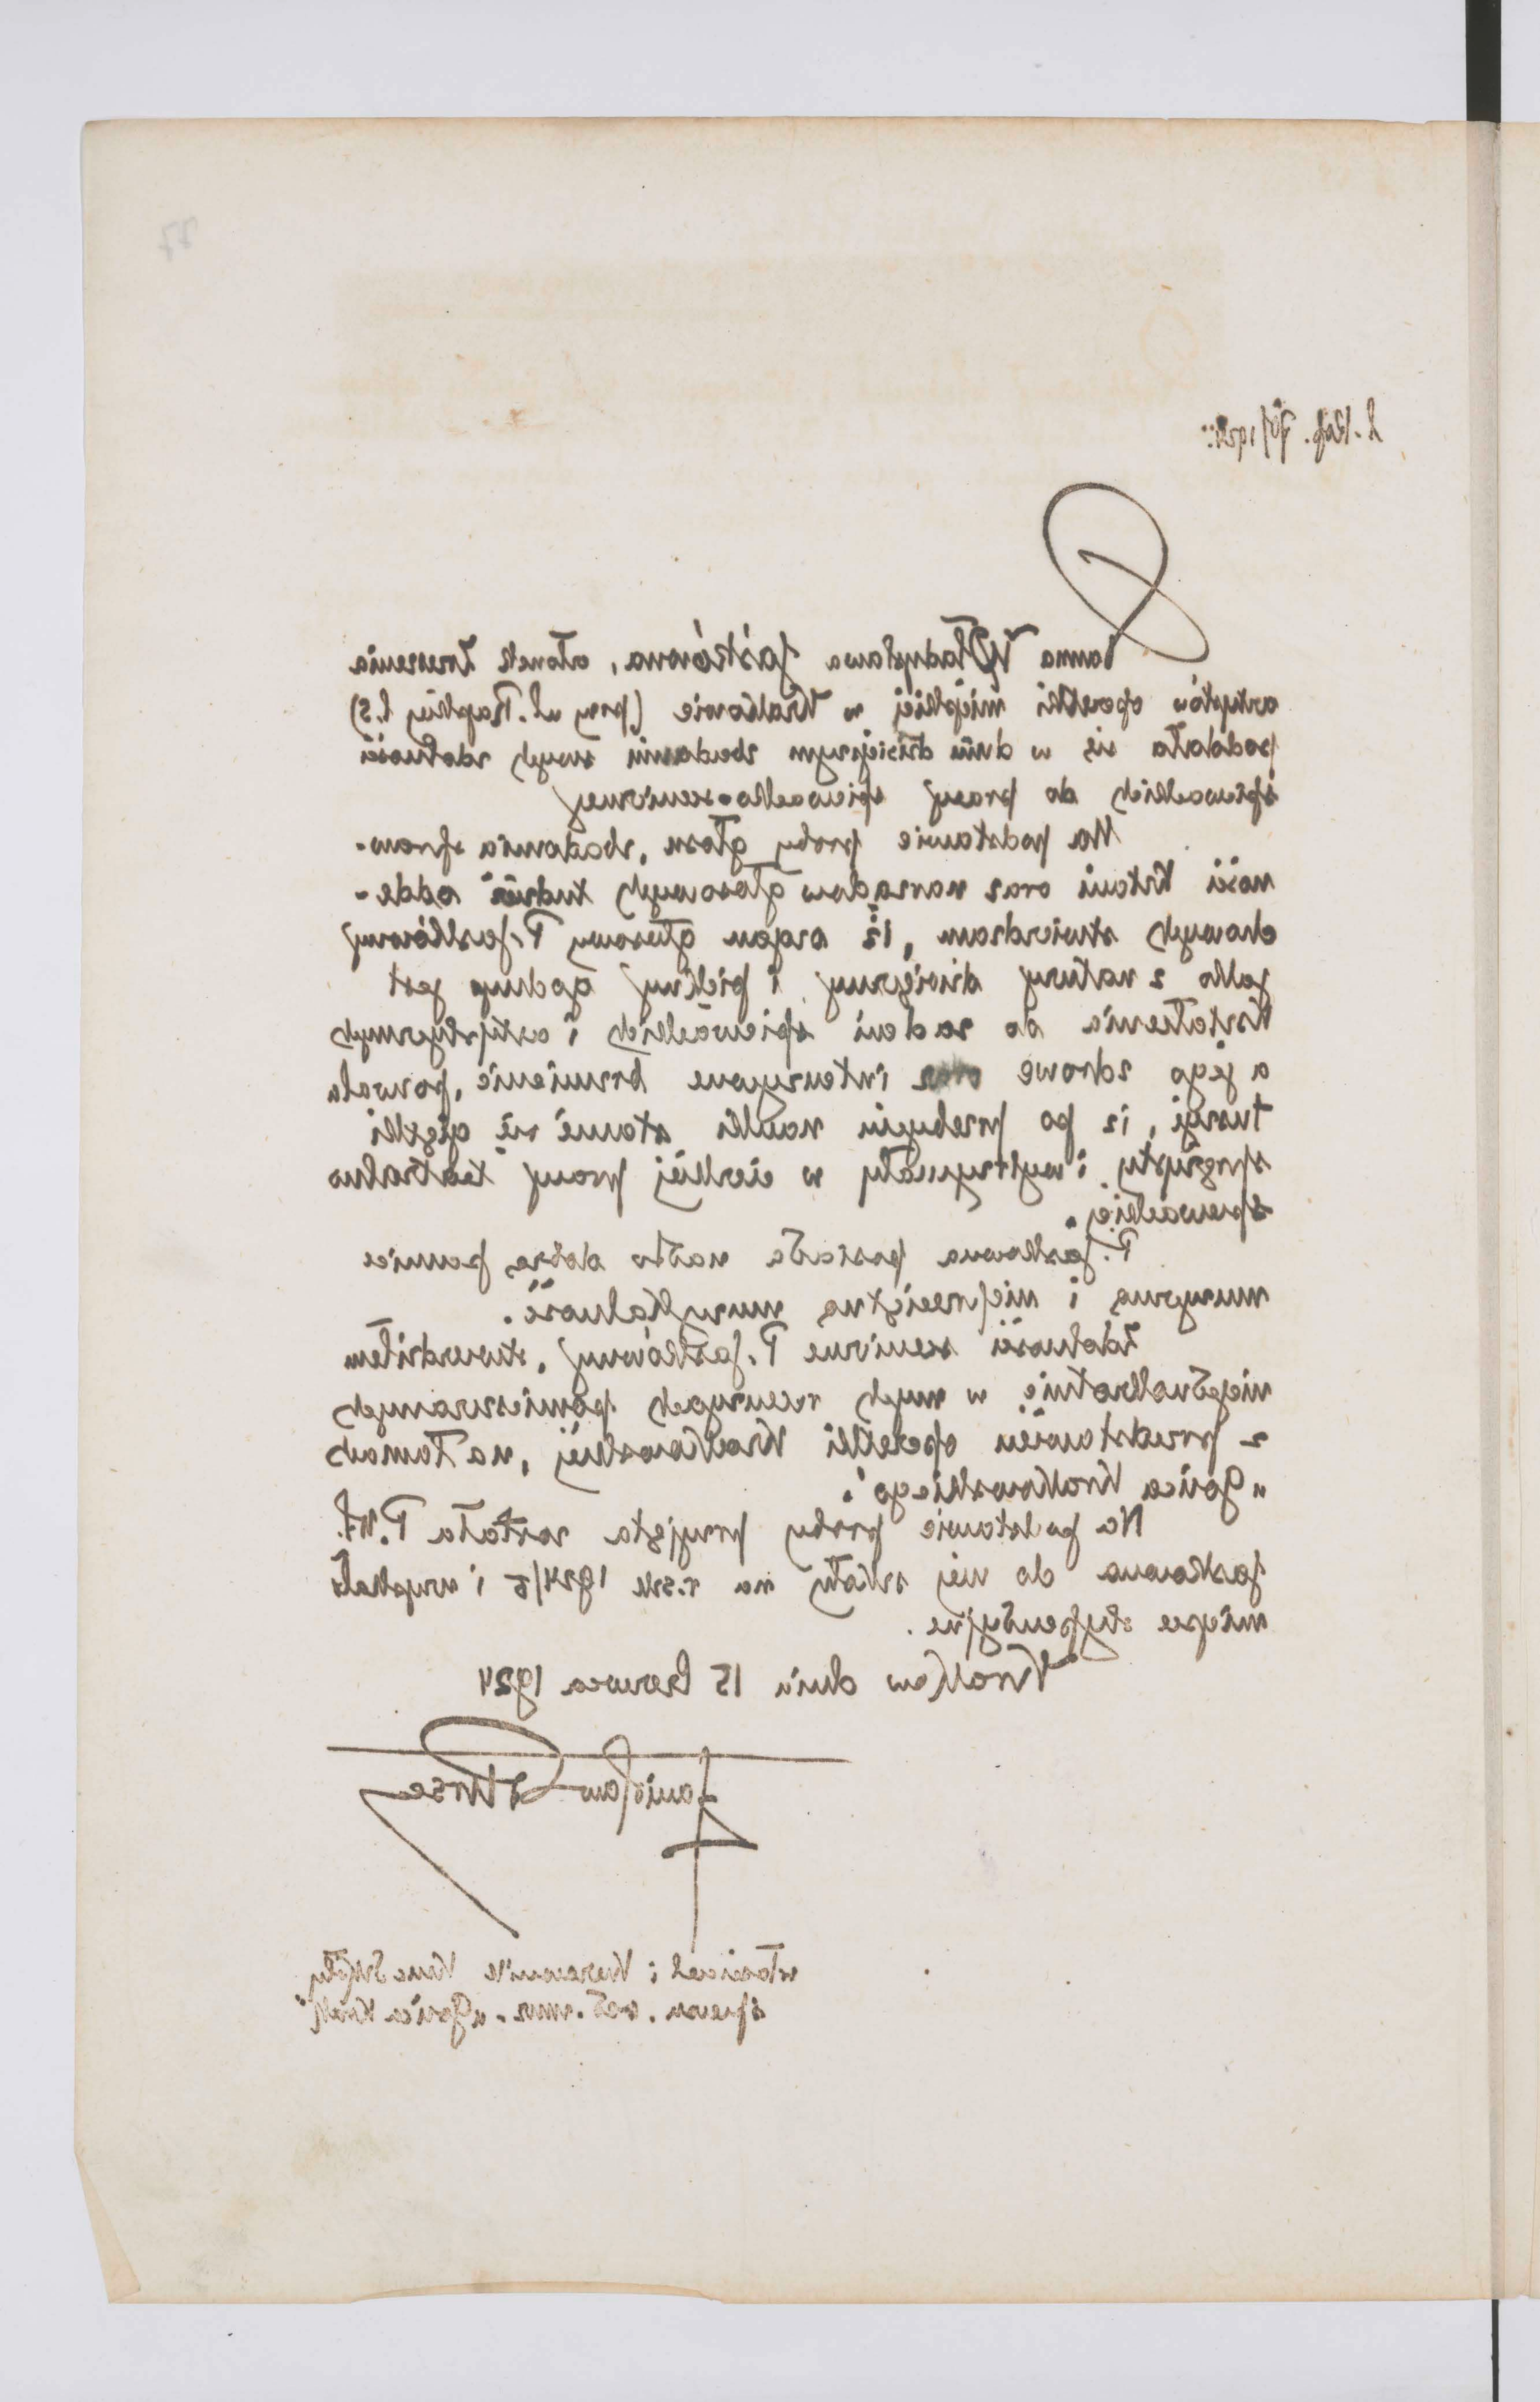 27
Panna Władysława Jaśkówna, członek Zrzeszenia
artystów operetki miejskiej w Krakowie (przy ul. Rajskiej l.2)
poddała się w dniu dzisiejszym zbadaniu swych zdolności
śpiewackich do pracy śpiewacko-scenicznej
Na podstawie próby głosu, zbadania spraw-
ności krtani oraz narządów głosowych tudzież odde-
chowych stwierdzam, iż organ głosowy P. Jaśkówny
jako z natury dźwięczny i piękny godny jest
kształcenia do zadań śpiewackich i artystycznych
a jego zdrowe oraz intenzywne brzmienie, pozwala
tuszyć, iż po przebyciu nauki stanie się giętki
sprężysty i wytrzymały w ciężkiej pracy teatralno
śpiewackiej.
P. Jaśkówna posiada nadto dobrą pamięć
muzyczną i nieprzeciętną muzykalność.
Zdolności sceniczne P. Jaśkówny, stwierdziłem
niejednokrotnie w mych recenzyach pomieszczanych
z przedstawień operetki Krakowskiej, na łamach
„Gońca Krakowskiego".
Na podstawie próby przyjętą została P. Wł.
Jaskowna do mej szkoły na r. szk 1924/5 i uzyskała
miejsce stypendyjne.
Krakow dnia 15 Czerwca 1924
właściciel i Kierownik Konc Szkoły
śpiewu. red. muz. „Gońca Krak"